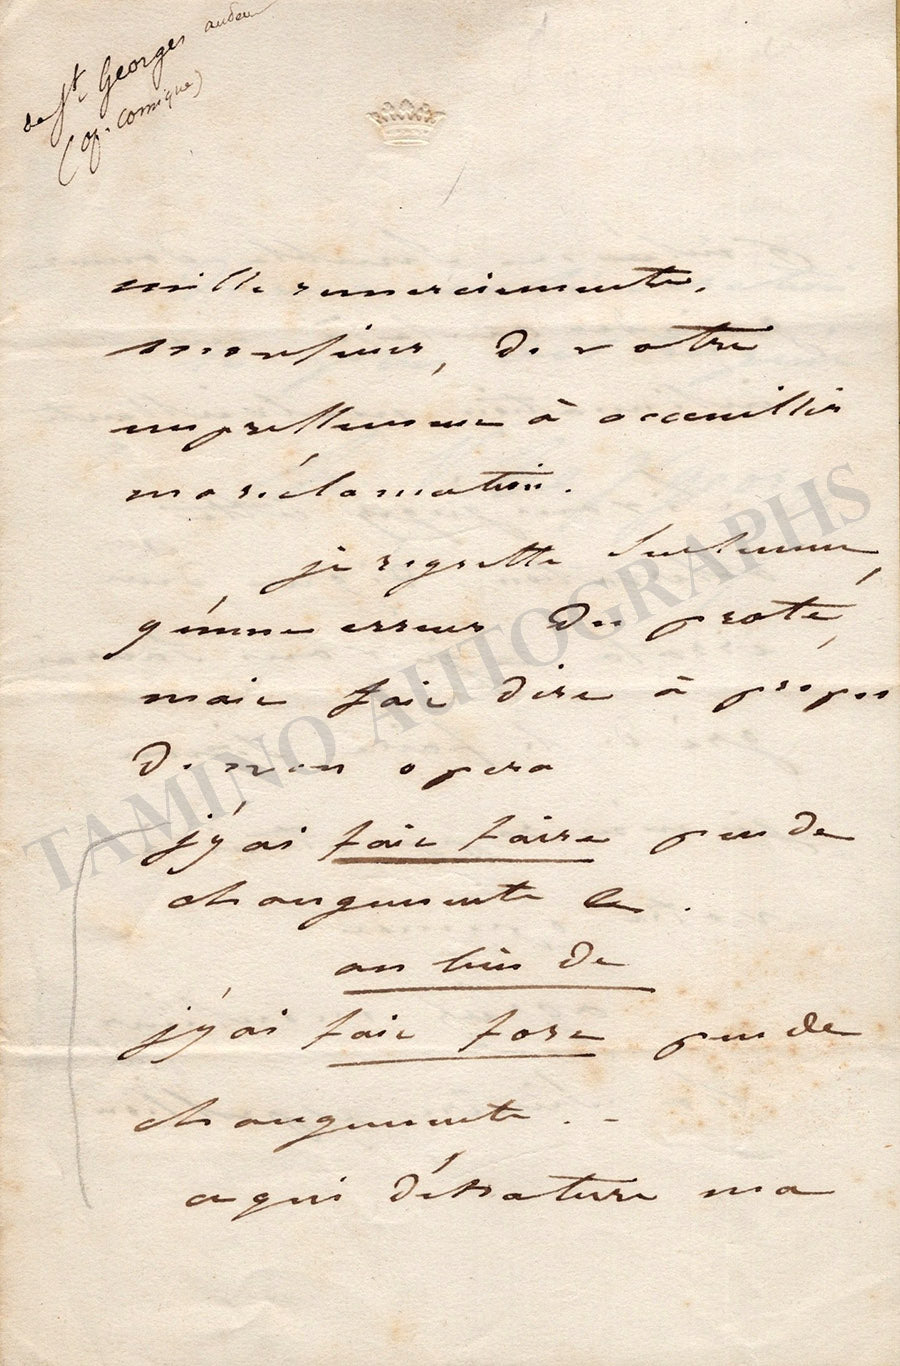 de St Georges
(op. comique)
mille remerciements,
monsieur, de votre
empressement à accueillir
ma réclamation.
je regrette seulement,
qu'une erreur du prote,
m'aie fait dire à propos
de mon opera
j'y ai fait faire peu de
changements
au lieu de
j'y ai fait fort peu de
changements . .
ce qui dénature ma
TAMINO AUTOGRAPHS